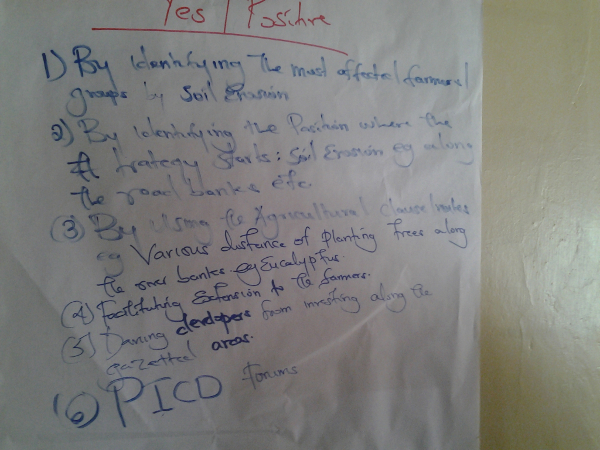 Yes | Positive
1) By Identifying the most affected farmers
groups by Soil Erosion
2) By Identifying the Position where the
Strategy starts: Soil Erosion eg along
the road banks etc
(3) By Using the Agricultural clause/rules
eg Various distance of planting trees along
the river banks eg Eucalyptus.
(4) Facilitating Extension to the farmers.
(5) developers from investing along the
gazetted areas.
(6) PICD forums